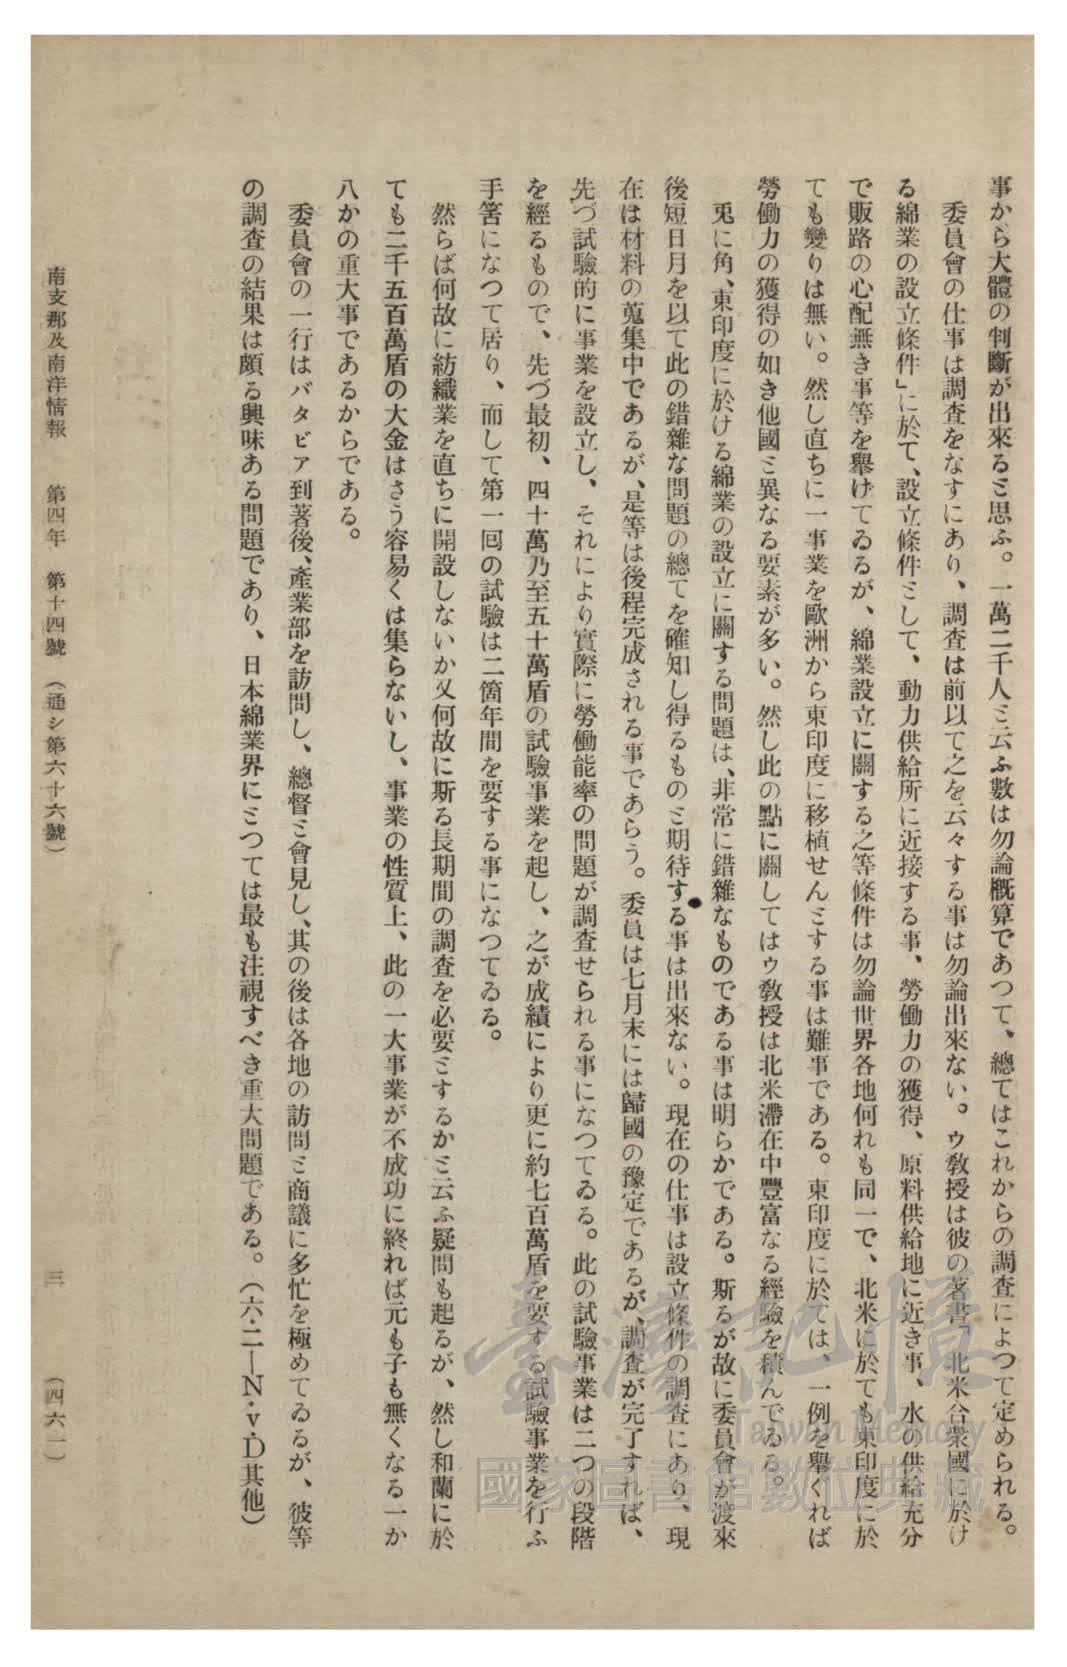 事から大體の判斷が出來るミ思ふ。一萬二千人ミ云ふ數は勿論槪算であつて、總てはこれからの調査によつて定められる。
委員會の仕事は調査をなすにあり、調査は前以て之を云々する事は勿論出來ない。ゥ敎授は彼の著書「北米合衆國に於け
る綿業の設立條件」に於て、設立條件ミして、動力供給所に近接する事、勞働力の獲得、原料供給地に近き事、水の供給充分
で販路の心配無き事等を擧げてゐるが、綿業設立に關する之等條件は勿論世界各地何れも同一で、北米に於ても東印度に於
ても變りは無い。然し直ちに一事業を歐洲から東印度に移植せんミする事は難事である。東印度に於ては、一例を擧ぐれば
勞働力の獲得の如き他國ミ異なる要素が多い。然し此の點に關してはゥ敎授は北米滯在中豐富なる經驗を積んでゐる。
兎に角、東印度に於ける綿業の設立に關する問題は、非常に錯雜なものである事は明らかである。斯るが故に委員會が渡來
後短日月を以て此の錯雜な問題の總てを確知し得るものミ期待する事は出來ない。現在の仕事は設立條件の調査にあり、現
在は材料の蒐集中であるが、是等は後程完成される事であらう。委員は七月末には歸國の豫定であるが、調査が完了すれば、
先づ試驗的に事業を設立し、それにより實際に勞働能率の問題が調査せられる事になつてゐる。此の試驗事業は二つの段階
を經るもので、先づ最初、四十萬乃至五十萬盾の試驗事業を起し、之が成績により更に約七百萬盾を要する試驗事業を行ふ
手筈になつて居り、而して第一回の試驗は二箇年間を要する事になつてゐる。
然らば何故に紡織業を直ちに開設しないか又何故に斯る長期間の調査を必要ミするかミ云ふ疑問も起るが、然し和蘭に於
ても二千五百萬盾の大金はさう容易くは集らないし、事業の性質上、此の一大事業が不成功に終れば元も子も無くなる一か
八かの重大事であるからである。
委員會の一行はバタビア到著後、產業部を訪問し、總督ミ會見し、其の後は各地の訪問ミ商議に多忙を極めてゐるが、彼等
の調査の結果は頗る興味ある問題であり、日本綿業界にミつては最も注視すべき重大問題である。（六・二―N・v・D其他）
南支那及南洋情報 第四年 第十四號 （通シ第六十六號） 三 （四六一）
臺灣記憶
Taiwan Memory
國家圖書館數位典藏